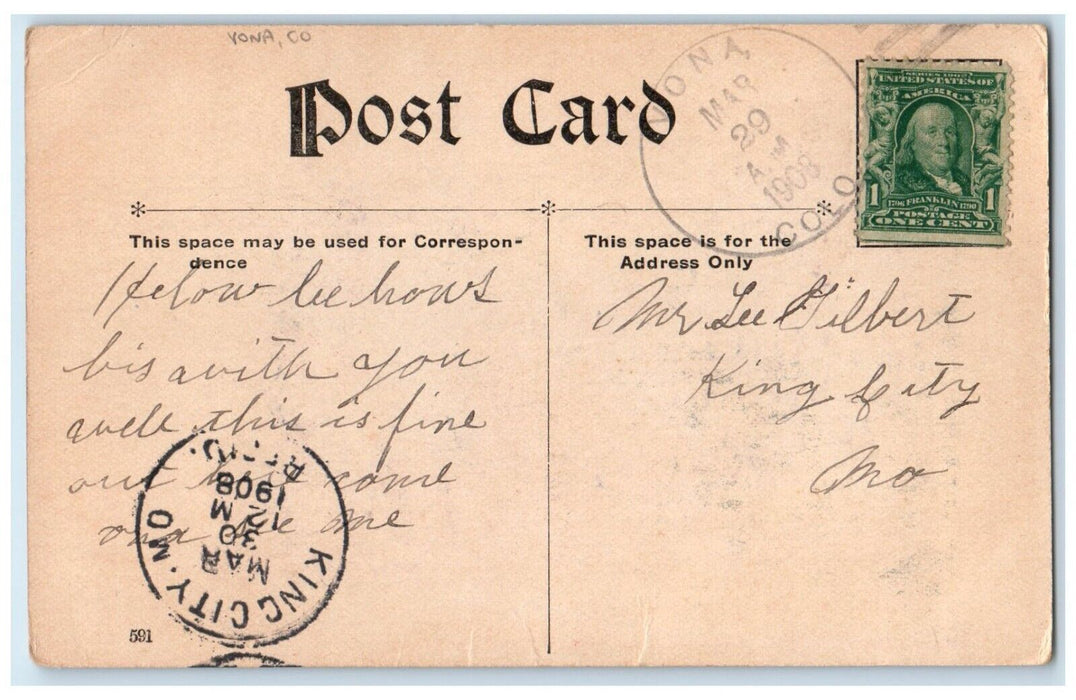 YONA, CO
Post Card
YONA
MAR
29
A M
1908
COLO
SERIES 1902
UNITED STATES OF
AMERICA
1 1
1706 FRANKLIN 1790
POSTAGE
ONE CENT
This space may be used for Correspon-
dence
This space is for the
Address Only
Helow lee hows
bis with you
well this is fine
out here come
and see me
Mr Lee Gilbert
King City
Mo
KING CITY. MO
MAR
30
12 M
1908
591